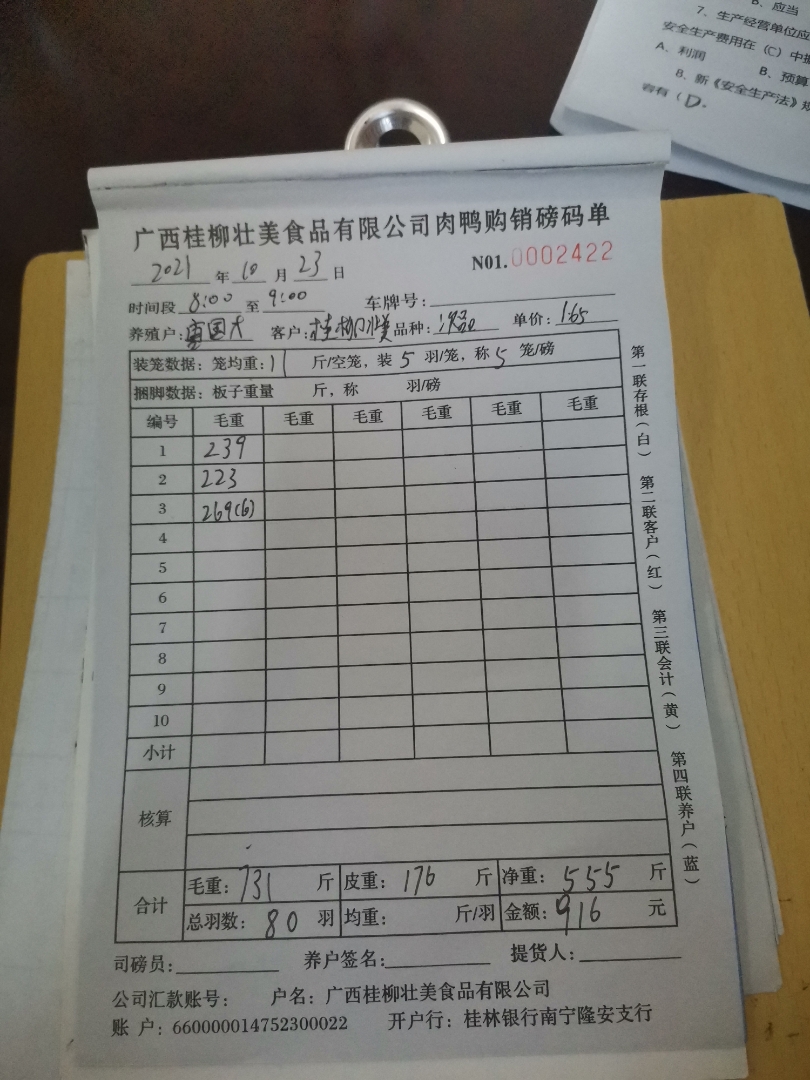 B、应当
7、生产经营单位应
安全生产费用在（C）中据
A、利润 B、预算
8、新《安全生产法》规
容有（D.
广西桂柳壮美食品有限公司肉鸭购销磅码单
2021 年 10 月 23 日 N01.0002422
时间段 8:00 至 9:00 车牌号:
养殖户: 国大 客户: 桂柳壮美 品种: 单价: 165
装笼数据: 笼均重: 11 斤/空笼, 装 5 羽/笼, 称 5 笼/磅
捆脚数据: 板子重量 斤, 称 羽/磅
编号 毛重 毛重 毛重 毛重 毛重 毛重
1 239
2 223
3 269(6)
4
5
6
7
8
9
10
小计
核算
合计 毛重: 731 斤 皮重: 176 斤 净重: 555 斤
总羽数: 80 羽 均重: 斤/羽 金额: 916 元
司磅员: 养户签名: 提货人:
公司汇款账号: 户名: 广西桂柳壮美食品有限公司
账 户: 660000014752300022 开户行: 桂林银行南宁隆安支行
第一联存根（白） 第二联客户（红） 第三联会计（黄） 第四联养户（蓝）